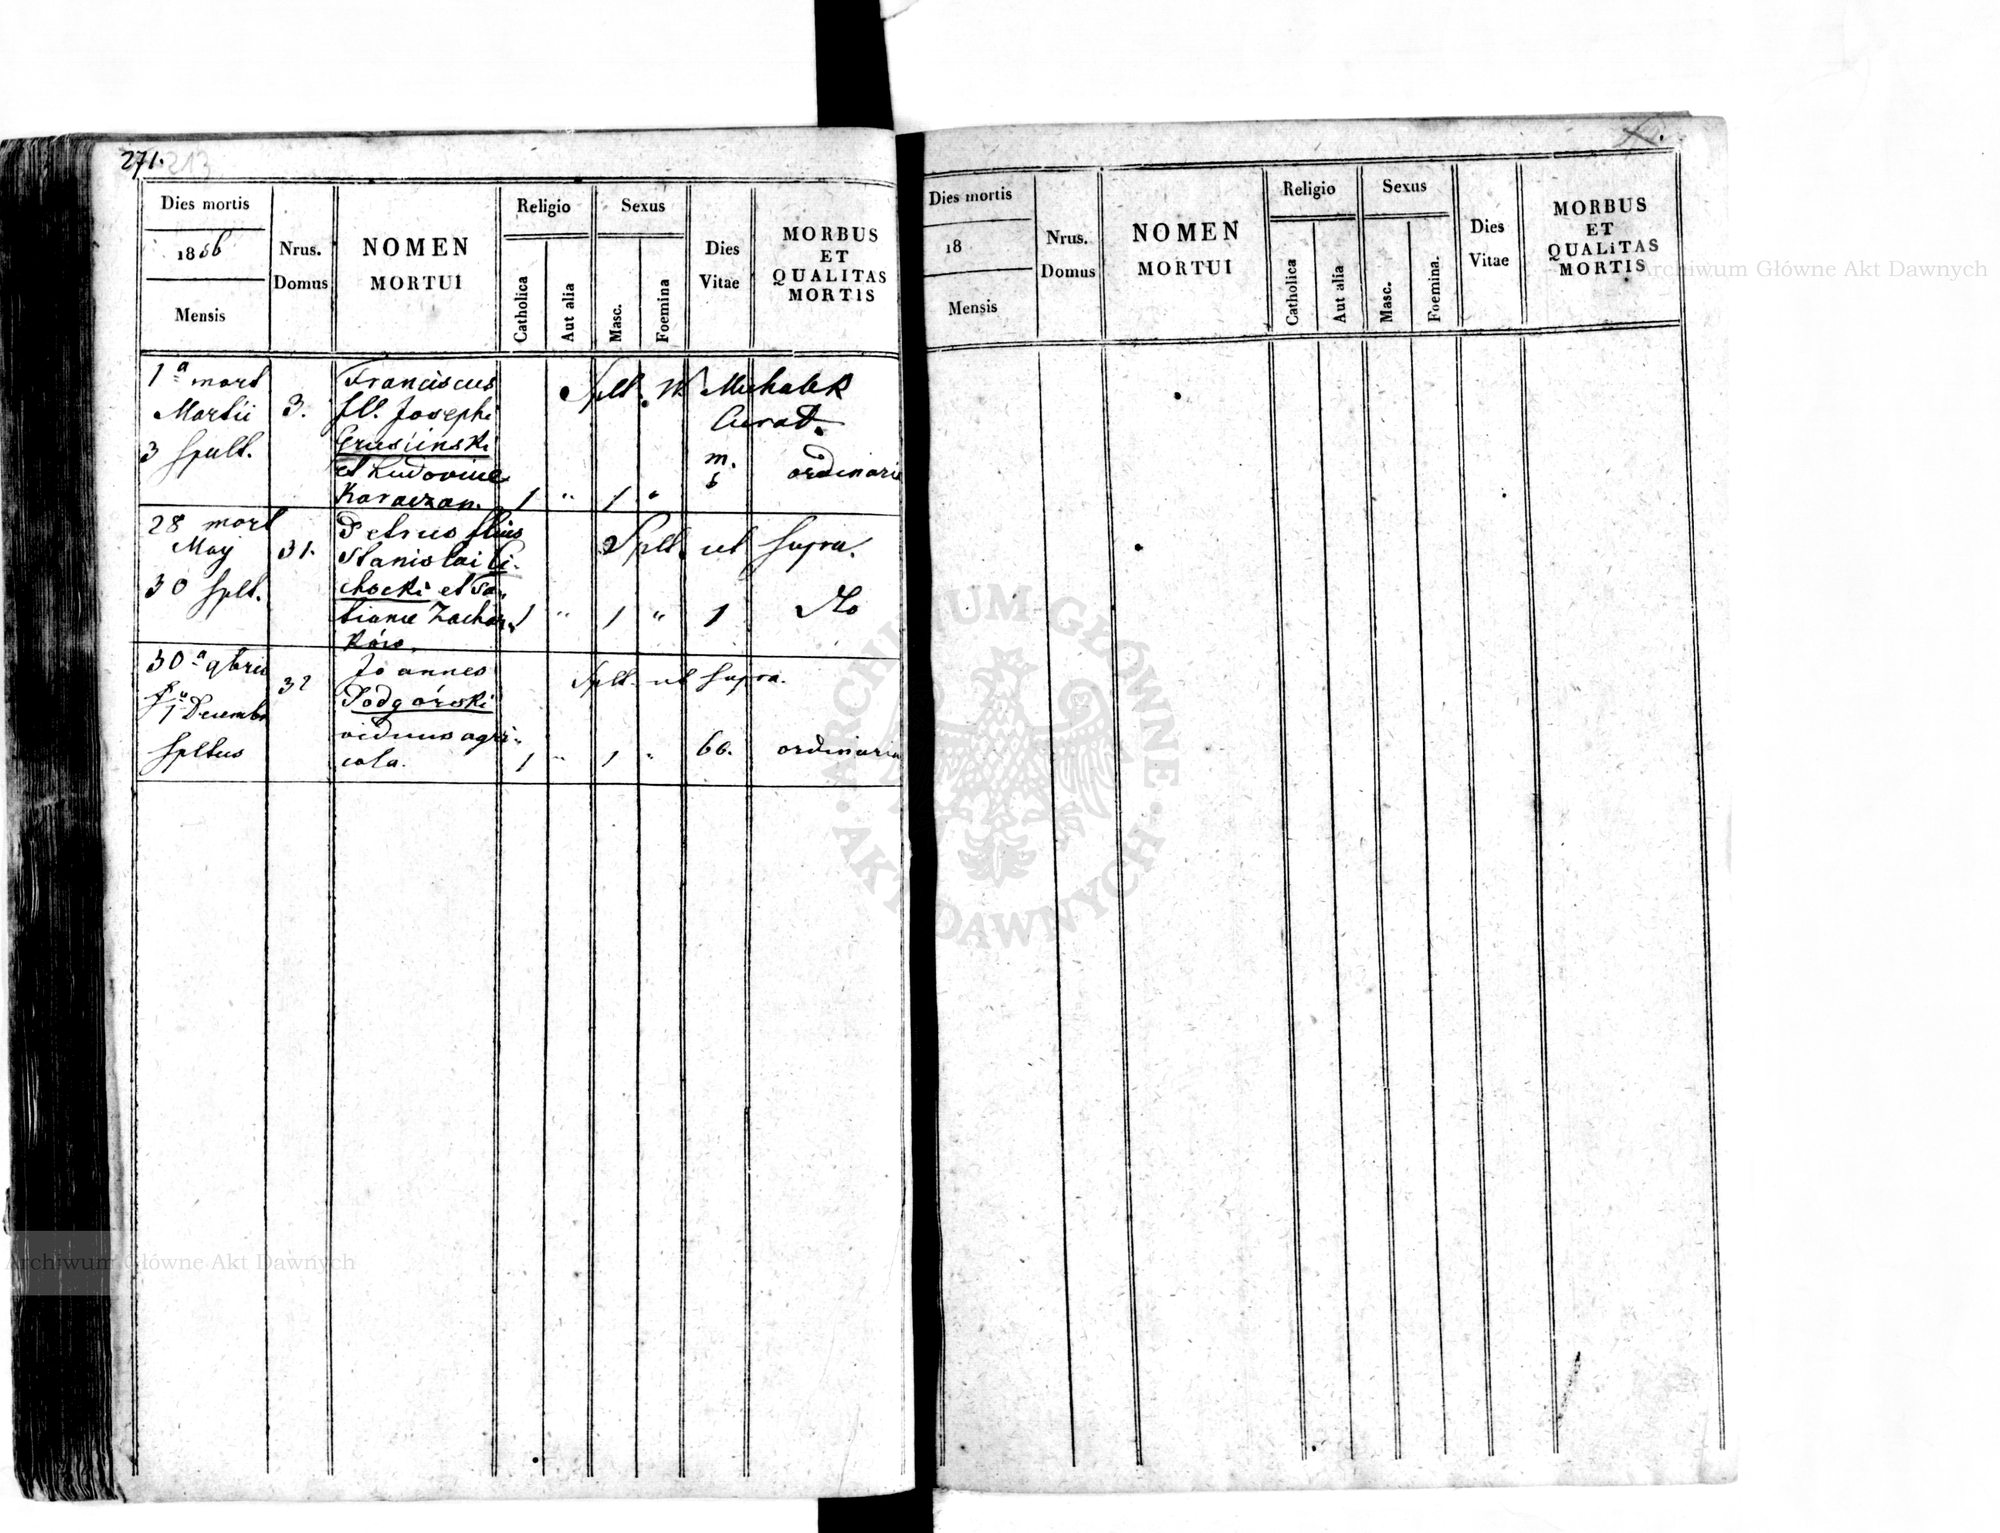 271. 213
Dies mortis
1856
Mensis
Nrus.
Domus
NOMEN
MORTUI
Religio
Catholica
Aut alia
Sexus
Masc.
Foemina
Dies
Vitae
MORBUS
ET
QUALITAS
MORTIS
1a mort
Martii
3 Spult.
3.
Franciscus
fil. Josephi
Grusiinski
et Ludovicae
Karaczan.
Splt. W Michalik
Curat.
1 " 1 "
m.
6
ordinaria
28 mort
May
30 Splt.
31.
Petrus filius
Stanislai Ci-
chocki et Ta-
tianae Zachar-
ków.
Splt. ut Supra.
1 " 1 " 1
30a 9bris
1 Decembr
Spltus
32
Joannes
Podgórski
viduus agri-
cola.
Splt. ut Supra.
1 " 1 " 66. ordinaria
Dies mortis
18
Mensis
Nrus.
Domus
NOMEN
MORTUI
Religio
Catholica
Aut alia
Sexus
Masc.
Foemina.
Dies
Vitae
MORBUS
ET
QUALITAS
MORTIS
Archiwum Główne Akt Dawnych
ARCHIWUM GŁÓWNE · AKT DAWNYCH ·
Archiwum Główne Akt Dawnych